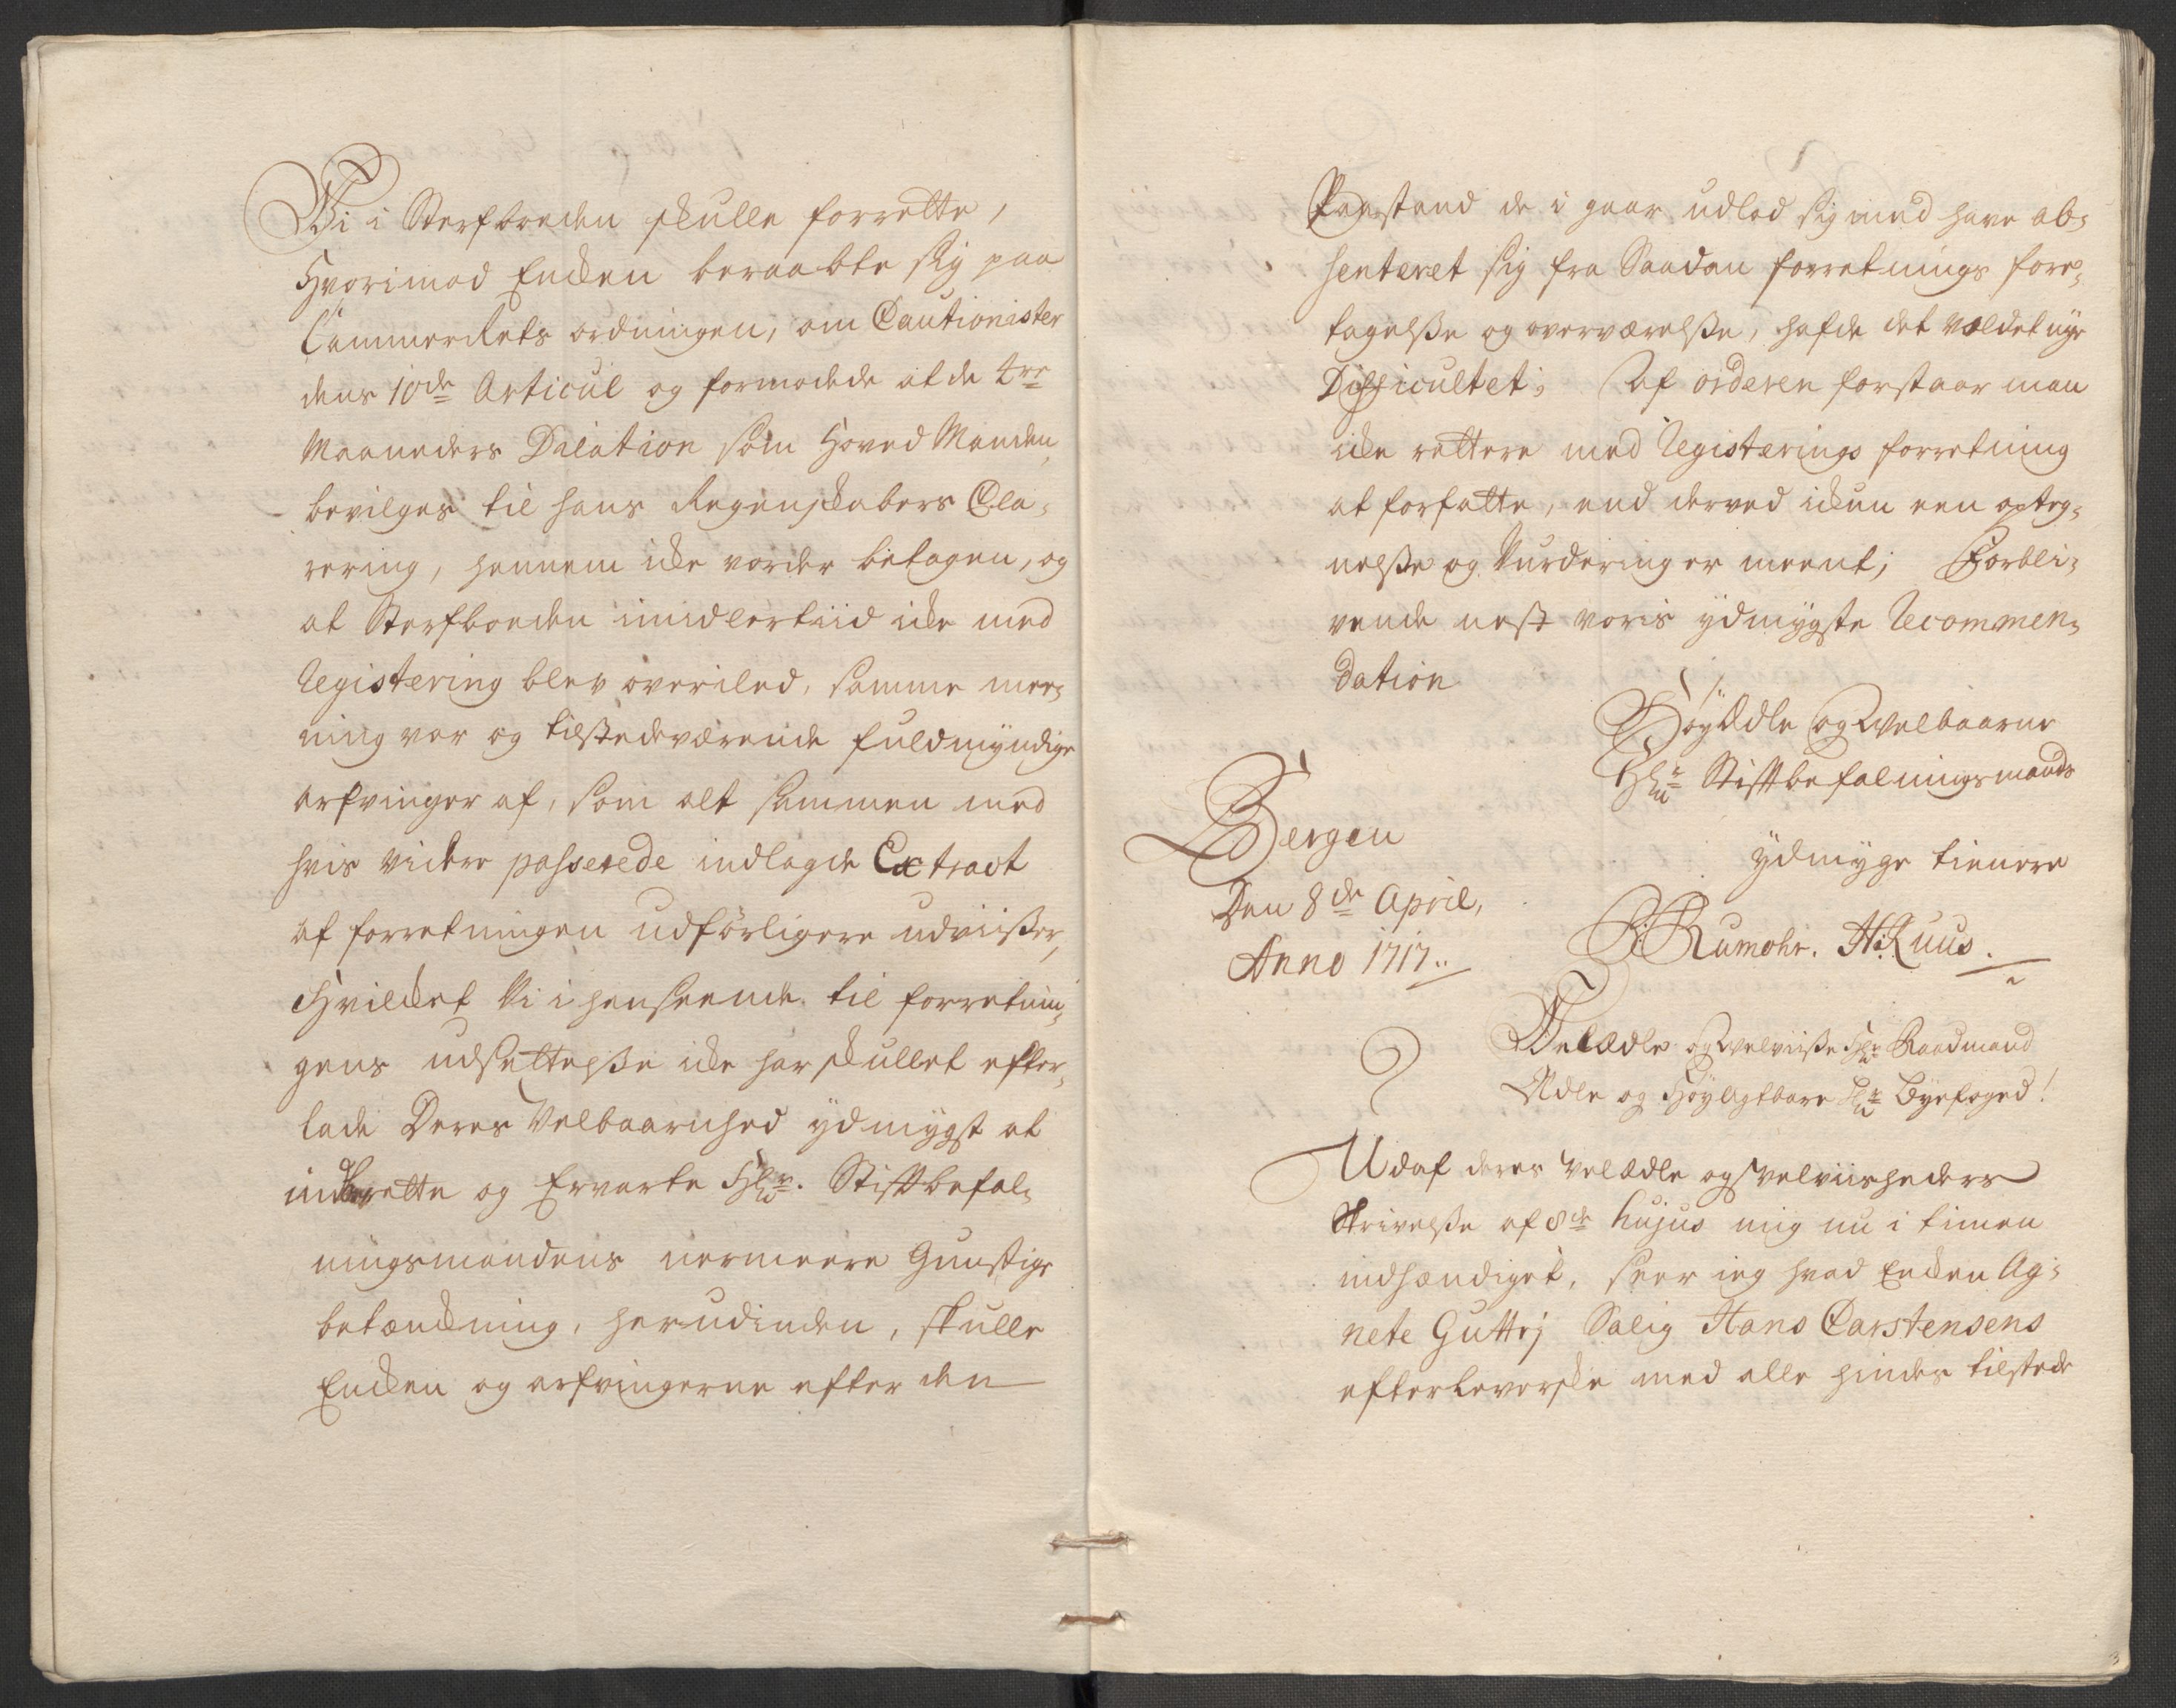 Wi i Sterfboeden skulle forrette,
Hvorimod Encken beraabte sig paa
Cammer Rets ordningen, om Cautionister
dens 10de Articul og formodede at de 4re
Maaneders Dilation som Hoved Manden
bevilges til hans Regenskabers Cla-
rering, hennem icke vorder betagen, og
at Sterfboeden imidlertiid icke med
Registering blev overiled, samme mee-
ning var og tilstedeværende fuldmyndige
arfvinger af, som alt sammen med
hvis videre passerede indlagde Extract
af forretningen udførligere udviisser,
Hvilcket Vi i henseende til forretnin-
gens udsettelsse icke har skullet efter-
lade Deres Velbaarenhed ydmygst at
indberette og Ervarte Hr. Stiftbefal-
ningsmandens nermeere Gunstige
betænckning, herudinden, skulle
Encken og arfvingerne efter den
Paastand de i gaar udlod sig med have ab-
senteret sig fra Saadan forretnings fore-
tagelsse og overværelsse, hafde det voldet nye
Difficultet; Af orderen forstaar man
icke rettere med Registerings forretning
at forfatte, end derved ickun een opteg-
nelsse og Vurdering er meent; Forbli-
vende nest voris ydmygste Recommen-
dation
HøyÆdle og Welbaarne
Hr Stiftbefalningsmands
ydmyge tienere
Bergen
Den 8de April,
Anno 1717.
Rumohr. H: Ruus.
WelÆdle og Welviisse Hr Raadmand
Ædle og Høyagtbare Hr Byefoged!
Udaf deres Velædle og Velviisheders
Skrivelsse af 8de hujus mig nu i timen
indhændiget, seer ieg hvad Encken Ag-
nete Guttrj Salig Hans Carstensens
efterleverske med alle hindes tilstede